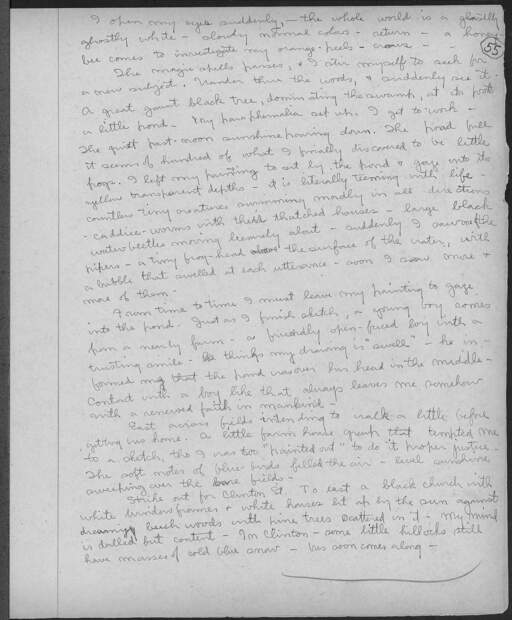 I open my eyes suddenly, - the whole world is a ghastly
ghostly white - slowly normal colors - return - a honey
55
bee comes to investigate my orange-peels - crows -
The magic spells passes, & I stir myself to seek for
a new subject. Wander thru the woods, & suddenly see it.
A great gaunt black tree, dominating the swamp, at its foot
a little pond. My paraphernalia set up, I get to work -
The quiet past-noon sunshine pouring down. The pond full
it seems of hundred of what I finally discovered to be little
frogs. I left my painting to sit by the pond & gaze into its
yellow transparent depths - it is literally teeming with life -
countless tiny creatures swimming madly in all directions
- caddice-worms with their thatched houses - large black
water beetles moving leisurely about - suddenly I saw one of the
pipers - a tiny frog-head above the surface of the water, with
a bubble that swelled at each utterance - soon I saw more &
more of them -
From time to time I must leave my painting to gaze
into the pond. Just as I finish sketch, a young boy comes
from a nearby farm - a friendly open-faced boy with a
trusting smile - He thinks my drawing is "swell" - he in-
formed me that the pond was over his head in the middle -
Contact with a boy like that always leaves me somehow
with a renewed faith in mankind -
East across fields intending to walk a little before
getting bus home. A little farm house group that tempted me
to a sketch, tho I was too "painted out" to do it proper justice -
The soft notes of blue-birds filled the air - level sunshine,
sweeping over the bare fields -
Strike out for Clinton St. To east a black church with
white window frames & white houses lit up by the sun against
beech woods with pine trees scattered in it - my mind
is dulled but content - In Clinton - some little hillocks still
have masses of cold blue snow - bus soon comes along -